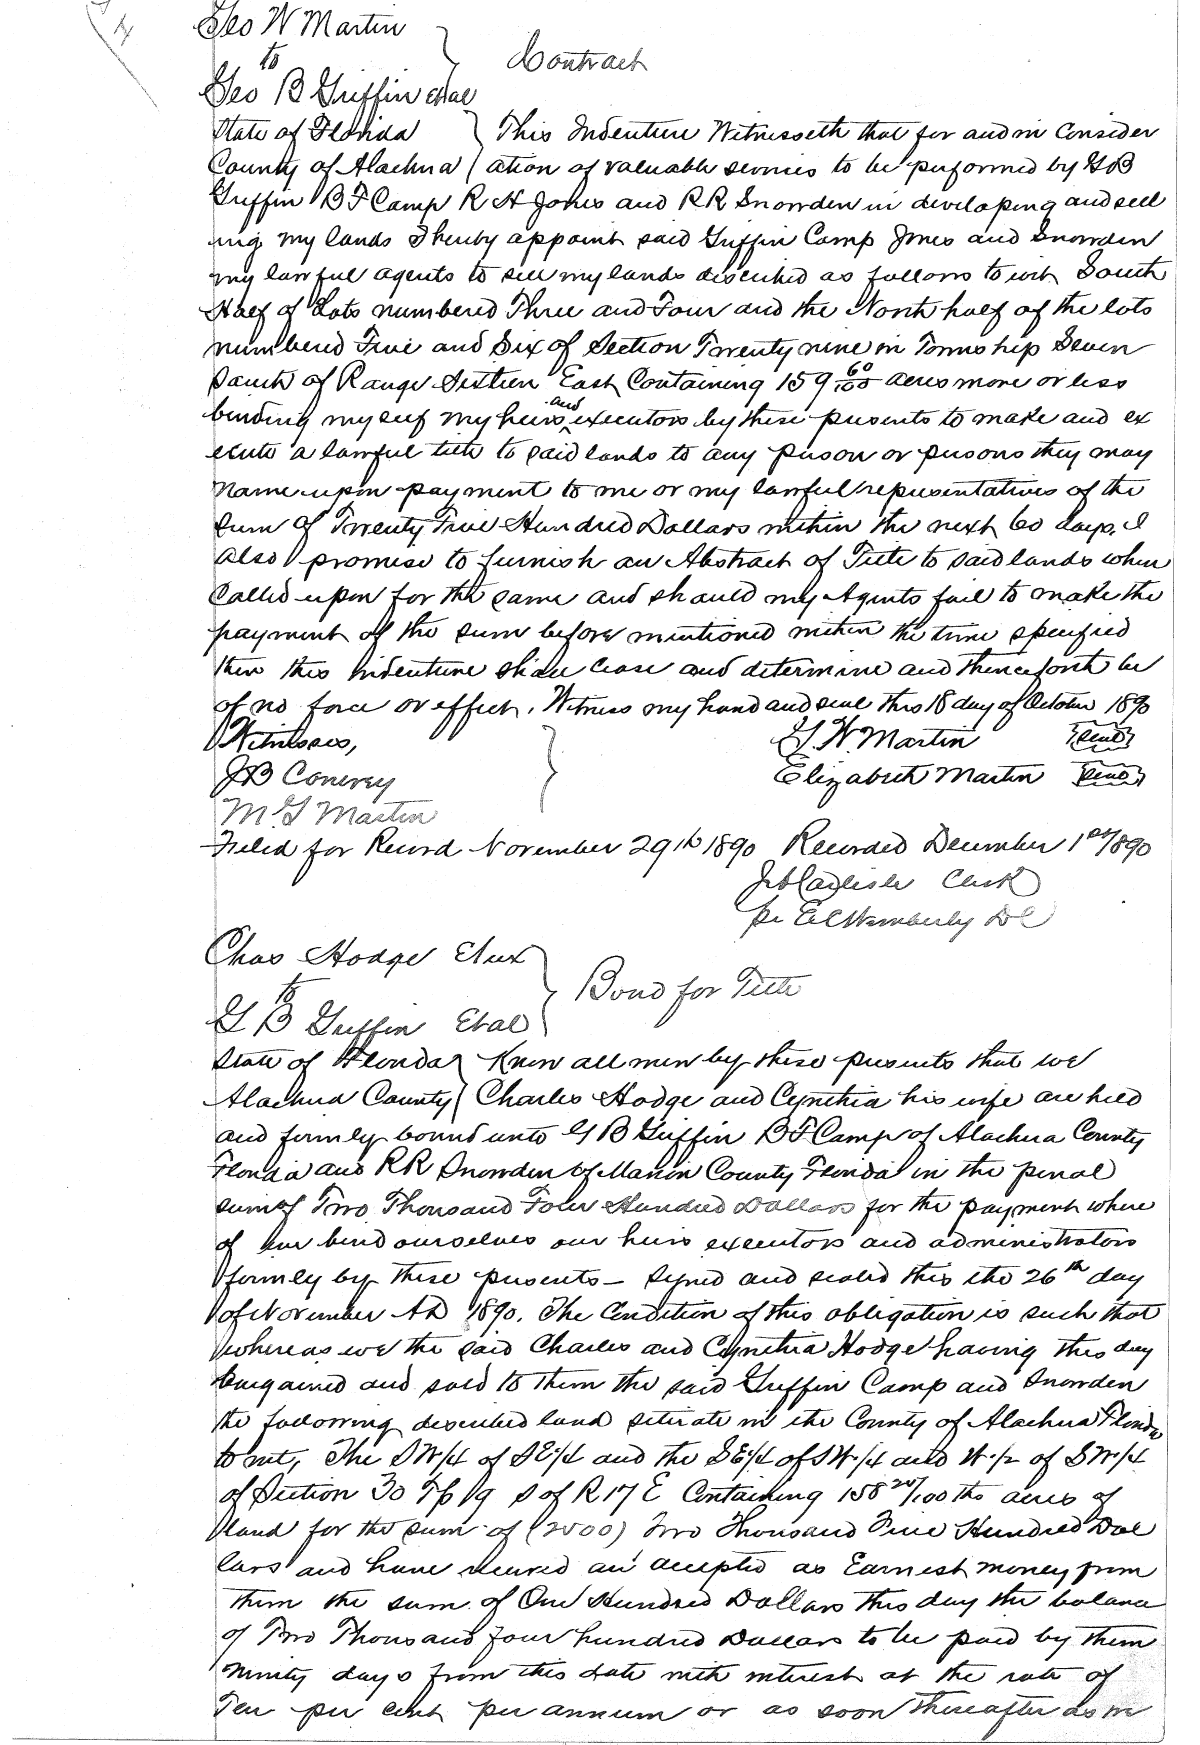 Geo W Martin
to
Contract
Geo B Griffin et al
State of Florida } This Indenture Witnesseth that for and in Consider
County of Alachua } ation of valuable services to be performed by G B
Griffin B F Camp R H Jones and R R Snowden in developing and sell
ing my lands I hereby appoint said Griffin Camp Jones and Snowden
my lawful agents to sell my lands described as follows to wit South
Half of Lots numbered Three and Four and the North half of the lots
numbered Five and Six of Section Twenty nine in Township Seven
South of Range Sixteen East Containing 159 60/100 acres more or less
binding myself my heirs and executors by these presents to make and ex
ecute a lawful title to said lands to any person or persons they may
name upon payment to me or my lawful representatives of the
sum of Twenty Five Hundred Dollars within the next 60 days. I
also promise to furnish an Abstract of Title to said lands when
called upon for the same and should my Agents fail to make the
payment of the sum before mentioned within the time specified
then this indenture shall cease and determine and thenceforth be
of no force or effect. Witness my hand and seal this 18 day of October 1890
Witnesses, G. W. Martin Seal
J B Conerey Elizabeth Martin Seal
M G Martin
Filed for Record November 29th 1890 Recorded December 1st 1890
Carlisle Clerk
pr Wimberly DC
Chas Hodge Et ux
to
Bond for Title
G B Griffin Et al
State of Florida } Know all men by these presents that we
Alachua County } Charles Hodge and Cynthia his wife are held
and firmly bound unto G B Griffin B F Camp of Alachua County
Florida and R R Snowden of Marion County Florida in the penal
sum of Two Thousand Four Hundred Dollars for the payment where
of we bind ourselves our heirs executors and administrators
firmly by these presents – Signed and sealed this the 26th day
of November AD 1890. The Condition of this obligation is such that
whereas we the said Charles and Cynthia Hodge having this day
bargained and sold to them the said Griffin Camp and Snowden
the following described land situate in the County of Alachua Florida
to wit, The SW/4 of SE/4 and the SE/4 of SW/4 and W 1/2 of SW/4
of Section 30 Tp 19 S of R 17 E Containing 158 20/100 ths acres of
land for the sum of (2500) Two Thousand Five Hundred Dol
lars and have received an accepted as Earnest money from
them the sum of One Hundred Dollars this day the balance
of Two Thousand four hundred Dollars to be paid by them
ninety days from this date with interest at the rate of
Ten per cent per annum or as soon thereafter as we